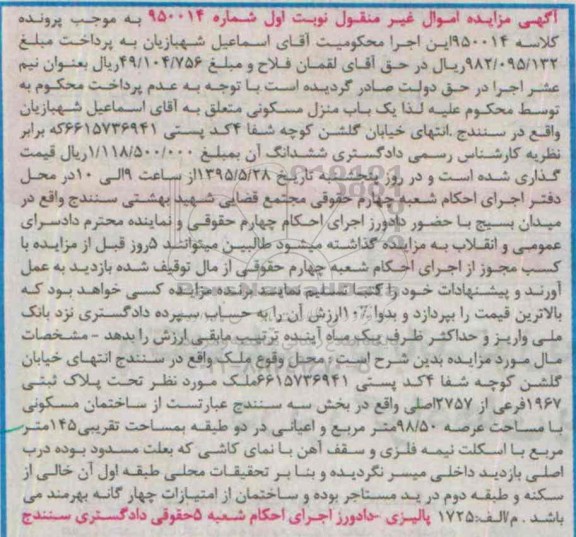 آگهی مزایده اموال غیر منقول نوبت اول شماره ۹۵۰۰۱۴ به موجب پرونده
کلاسه ۹۵۰۰۱۴این اجرا محکومیت آقای اسماعیل شهبازیان به پرداخت مبلغ
۹۸۲/۰۹۵/۱۳۲ریال در حق آقای لقمان فلاح و مبلغ ۴۹/۱۰۴/۷۵۶ریال بعنوان نیم
عشر اجرا در حق دولت صادر گردیده است با توجه به عدم پرداخت محکوم به
توسط محکوم علیه لذا یک باب منزل مسکونی متعلق به آقای اسماعیل شهبازیان
واقع در سنندج .انتهای خیابان گلشن کوچه شفا ۴کد پستی ۶۶۱۵۷۳۶۹۴۱که برابر
نظریه کارشناس رسمی دادگستری ششدانگ آن بمبلغ ۱/۱۱۸/۵۰۰/۰۰۰ریال قیمت
گذاری شده است و در روز پنجشنبه تاریخ ۱۳۹۵/۵/۲۸از ساعت ۹الی ۱۰در محل
دفتر اجرای احکام شعبه چهارم حقوقی مجتمع قضایی شهید بهشتی سنندج واقع در
میدان بسیج با حضور دادورز اجرای احکام چهارم حقوقی و نماینده محترم دادسرای
عمومی و انقلاب به مزایده گذاشته میشود طالبین میتوانند ۵روز قبل از مزایده با
کسب مجوز از اجرای احکام شعبه چهارم حقوقی از مال توقیف شده بازدید به عمل
آورند و پیشنهادات خود را کتبا تسلیم نمایند برنده مزایده کسی خواهد بود که
بالاترین قیمت را بپردازد و بدوا ۱۰٪ارزش آن را به حساب سپرده دادگستری نزد بانک
ملی واریز و حداکثر ظرف یک ماه آینده ترتیب مابقی ارزش را بدهد - مشخصات
مال مورد مزایده بدین شرح است : محل وقوع ملک واقع در سنندج انتهای خیابان
گلشن کوچه شفا ۴کد پستی ۶۶۱۵۷۳۶۹۴۱ملک مورد نظر تحت پلاک ثبتی
۱۹۶۷فرعی از ۲۷۵۷اصلی واقع در بخش سه سنندج عبارتست از ساختمان مسکونی
با مساحت عرصه ۹۸/۵۰متر مربع و اعیانی در دو طبقه بمساحت تقریبی۱۴۵متر
مربع با اسکلت نیمه فلزی و سقف آهن با نمای کاشی که بعلت مسدود بوده درب
اصلی بازدید داخلی میسر نگردیده و بنا بر تحقیقات محلی طبقه اول آن خالی از
سکنه و طبقه دوم در ید مستاجر بوده و ساختمان از امتیازات چهار گانه بهرمند می
باشد . م/الف:۱۷۲۵ پالیزی -دادورز اجرای احکام شعبه ۵حقوقی دادگستری سنندج